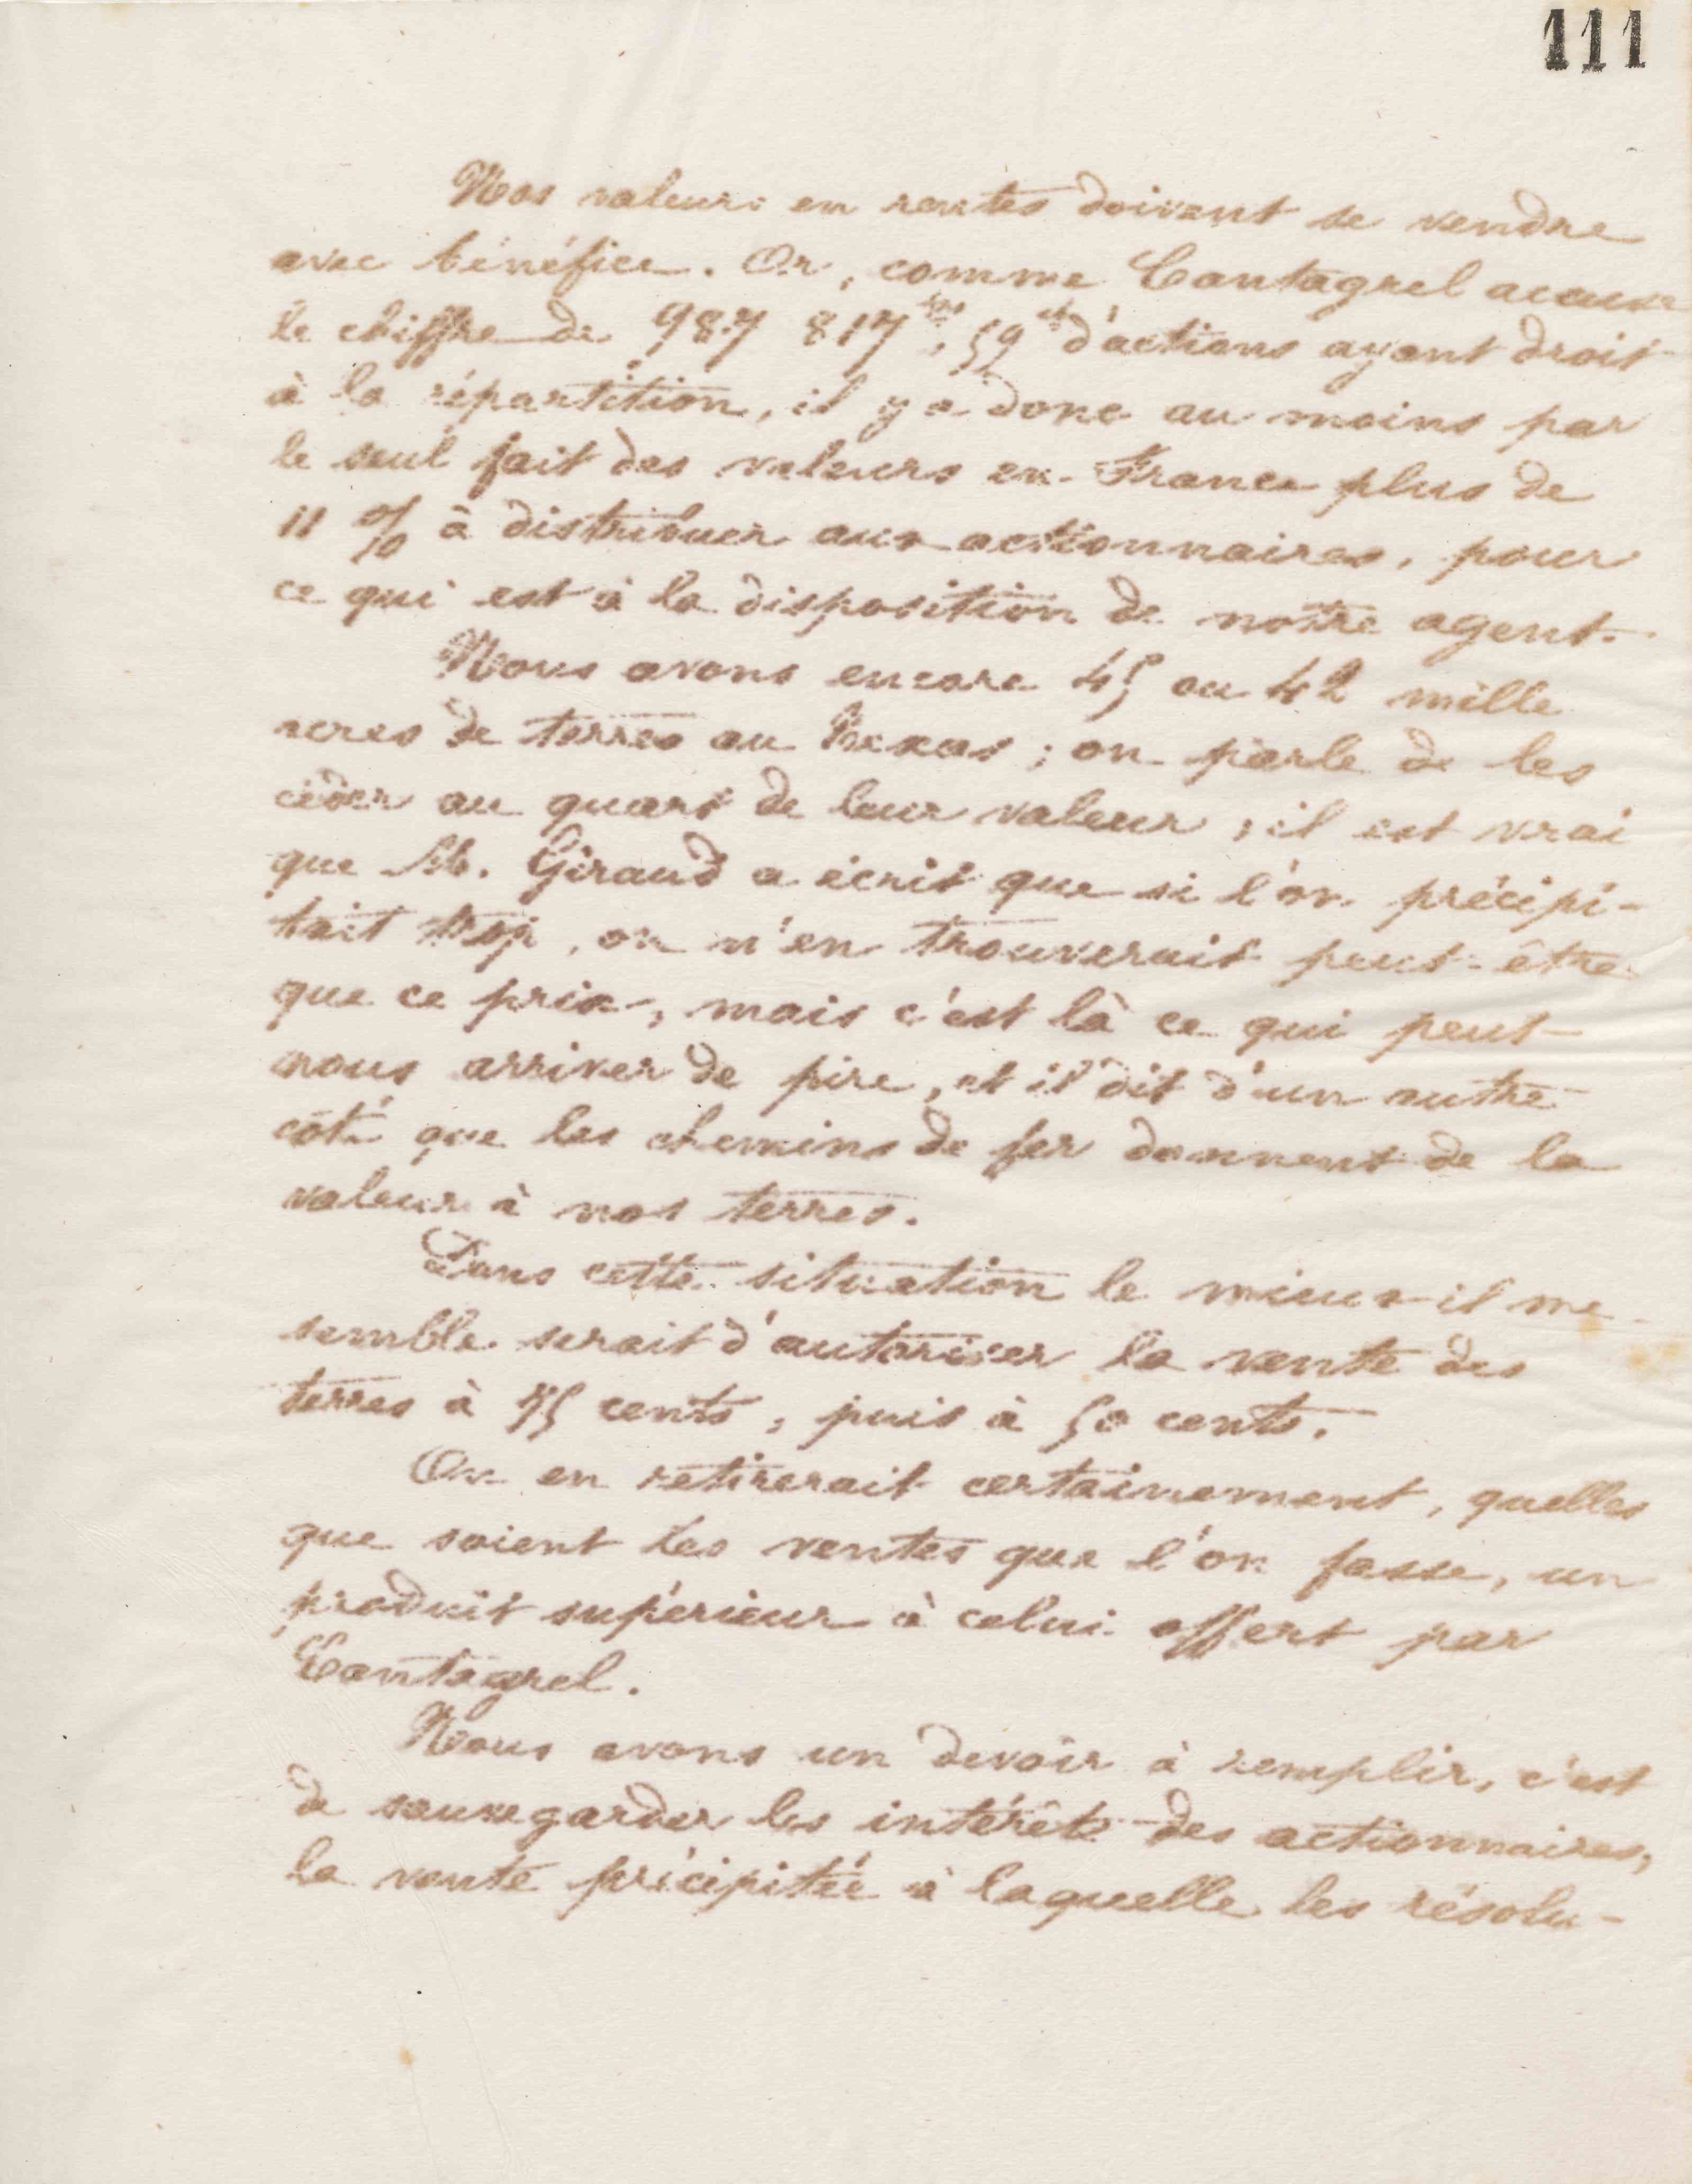 111
Nos valeurs en rentes doivent se vendre
avec bénéfice. Or, comme Cantagrel accuse
le chiffre de 987 817 59 d'actions ayant droit
à la répartition, il y a donc au moins par
le seul fait des valeurs en France plus de
11 % à distribuer aux actionnaires, pour
ce qui est à la disposition de notre agent.
Nous avons encore 45 ou 42 mille
acres de terres au Texas ; on parle de les
céder au quart de leur valeur ; il est vrai
que M. Giraud a écrit que si l'on précipi-
tait trop, on n'en trouverait peut-être
que ce prix, mais c'est là ce qui peut
nous arriver de pire, et il dit d'un autre
côté que les chemins de fer donnent de la
valeur à nos terres.
Dans cette situation le mieux il me
semble serait d'autoriser la vente des
terres à 75 cents, puis à 50 cents.
On en retirerait certainement, quelles
que soient les ventes que l'on fasse, un
produit supérieur à celui offert par
Cantagrel.
Nous avons un devoir à remplir, c'est
de sauvegarder les intérêts des actionnaires,
la vente précipitée à laquelle les résolu-